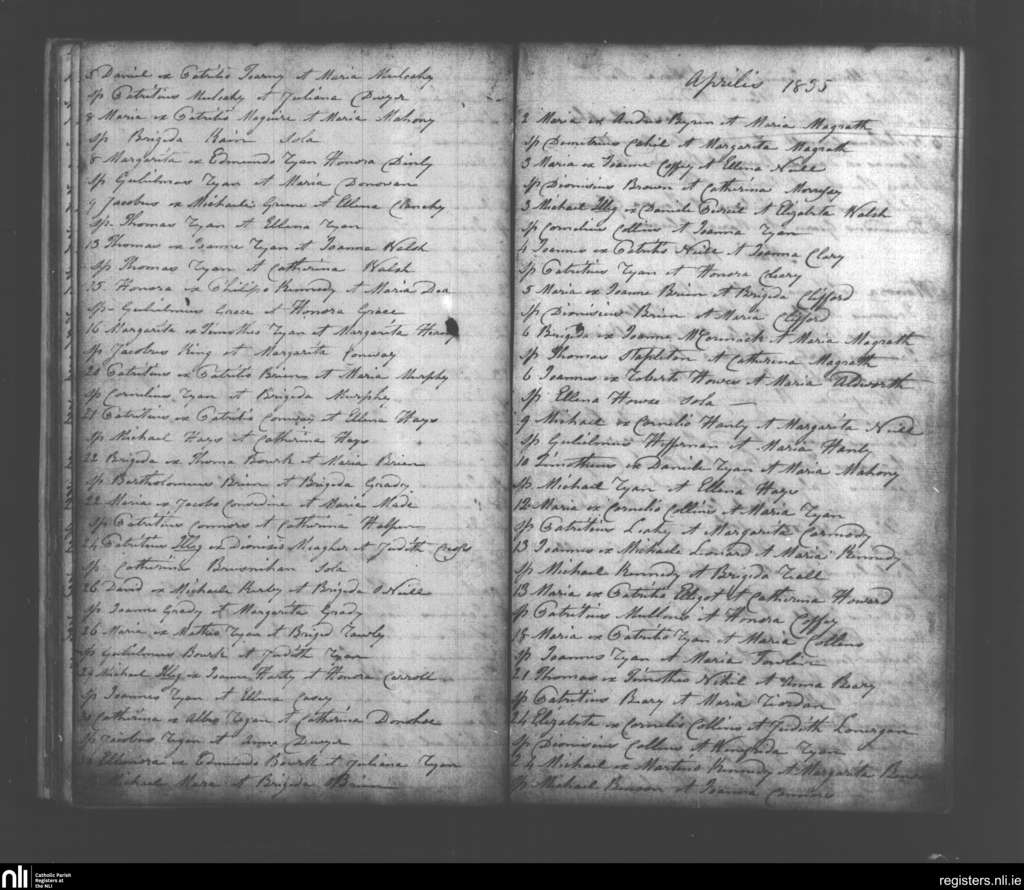 5 Daniel ex Patritio Tearny et Maria Mulcahy
Sp Patritius Mulcahy et Juliana Dwyer
8 Maria ex Patritio Maguire et Maria Mahony
Sp Brigida Kain Sola
8 Margarita ex Edmundo Ryan Honora
Sp Gulielmus Ryan et Maria Donovan
9 Jacobus ex Michaele Greene et Ellena
Sp Thomas Ryan et Ellena Ryan
13 Thomas ex Joanne Ryan et Joanna Walsh
Sp Thomas Ryan et Catherina Walsh
15 Honora ex Philipo Kennedy et Maria Dea
Sp Gulielmus Grace et Honora Grace
16 Margarita ex Timotheo Ryan et Margarita
Sp Jacobus King et Margarita Conway
20 Patritius ex Patritio Brien et Maria Murphy
Sp Cornelius Ryan et Brigida Murphy
21 Patritius ex Patritio Conway et Ellena Hays
Sp Michael Hays et Catherina Hays
22 Brigida ex Thoma Bourk et Maria Brien
Sp Bartholomeus Brien et Brigida Grady
22 Maria ex Jacobo Considine et Maria Made
Sp Patritius Connors et Catherina Halpen
24 Patritius Illeg ex Dionisio Meagher et Judith
Sp Catherina Brusnihan Sola
26 David ex Michaele Kirby et Brigida O Neill
Sp Joanne Grady et Margarita Grady
26 Maria ex Matheo Ryan et Brigid
Sp Gulielmus Bourk et Judith Ryan
29 Michael Illeg ex Joanne Harty et Honora Carroll
Sp Joannes Ryan et Ellena Casey
Catherina ex Ryan et Catherina Donohoe
Sp Jacobus Ryan et Anna Dwyer
Ellenora ex Edmundo Bourk et Juliana Ryan
Michael Mara et Brigida OBrien
Aprilis 1835
2 Maria ex Andrea Byrn et Maria Magrath
Sp Demetrius Cahil et Margarita Magrath
3 Maria ex Joanne Coffey et Ellena Neill
Sp Dionisius Brown et Catherina Morrisey
3 Michael Illeg ex Daniele et Elizabeta Walsh
Sp Cornelius Collins et Joanna Ryan
4 Joannes ex Patritio Neill et Joanna Clary
Sp Patritius Ryan et Honora Cleary
5 Maria ex Joanne Brien et Brigida Clifford
Sp Dionisius Brien et Maria Clifford
6 Brigida ex Joanne McCormack et Maria Magrath
Sp Thomas Stapleton et Catherina Magrath
6 Joannes ex Roberto Howse et Maria Aldworth
Sp Ellena Howse Sola
9 Michael ex Cornelio Hanly et Margarita Neill
Sp Gulielmus Heffernan et Maria Hanly
10 Timotheus ex Daniele Ryan et Maria Mahony
Sp Michael Ryan et Ellena Hays
12 Maria ex Cornelio Collins et Maria Ryan
Sp Patritius Leahy et Margarita Carmody
13 Joannes ex Michaele Leonard et Maria Kennedy
Sp Michael Kennedy et Brigida
13 Maria ex Patritio Elligot et Catherina Howard
Sp Patritius Mullone et Honora Coffey
18 Maria ex Patritio Ryan et Maria Collens
Sp Joannes Ryan et Maria
21 Thomas ex Timotheo Nihil et Anna Beary
Sp Patritius Beary et Maria Riordan
24 Elizabeta ex Cornelio Collins et Judith Lonergan
Sp Dionisius Collins et Winifrida Ryan
24 Michael ex Martino Kennedy et Margarita
Sp Michael Benson et Joanna
nli
Catholic Parish
Registers at
the NLI
registers.nli.ie